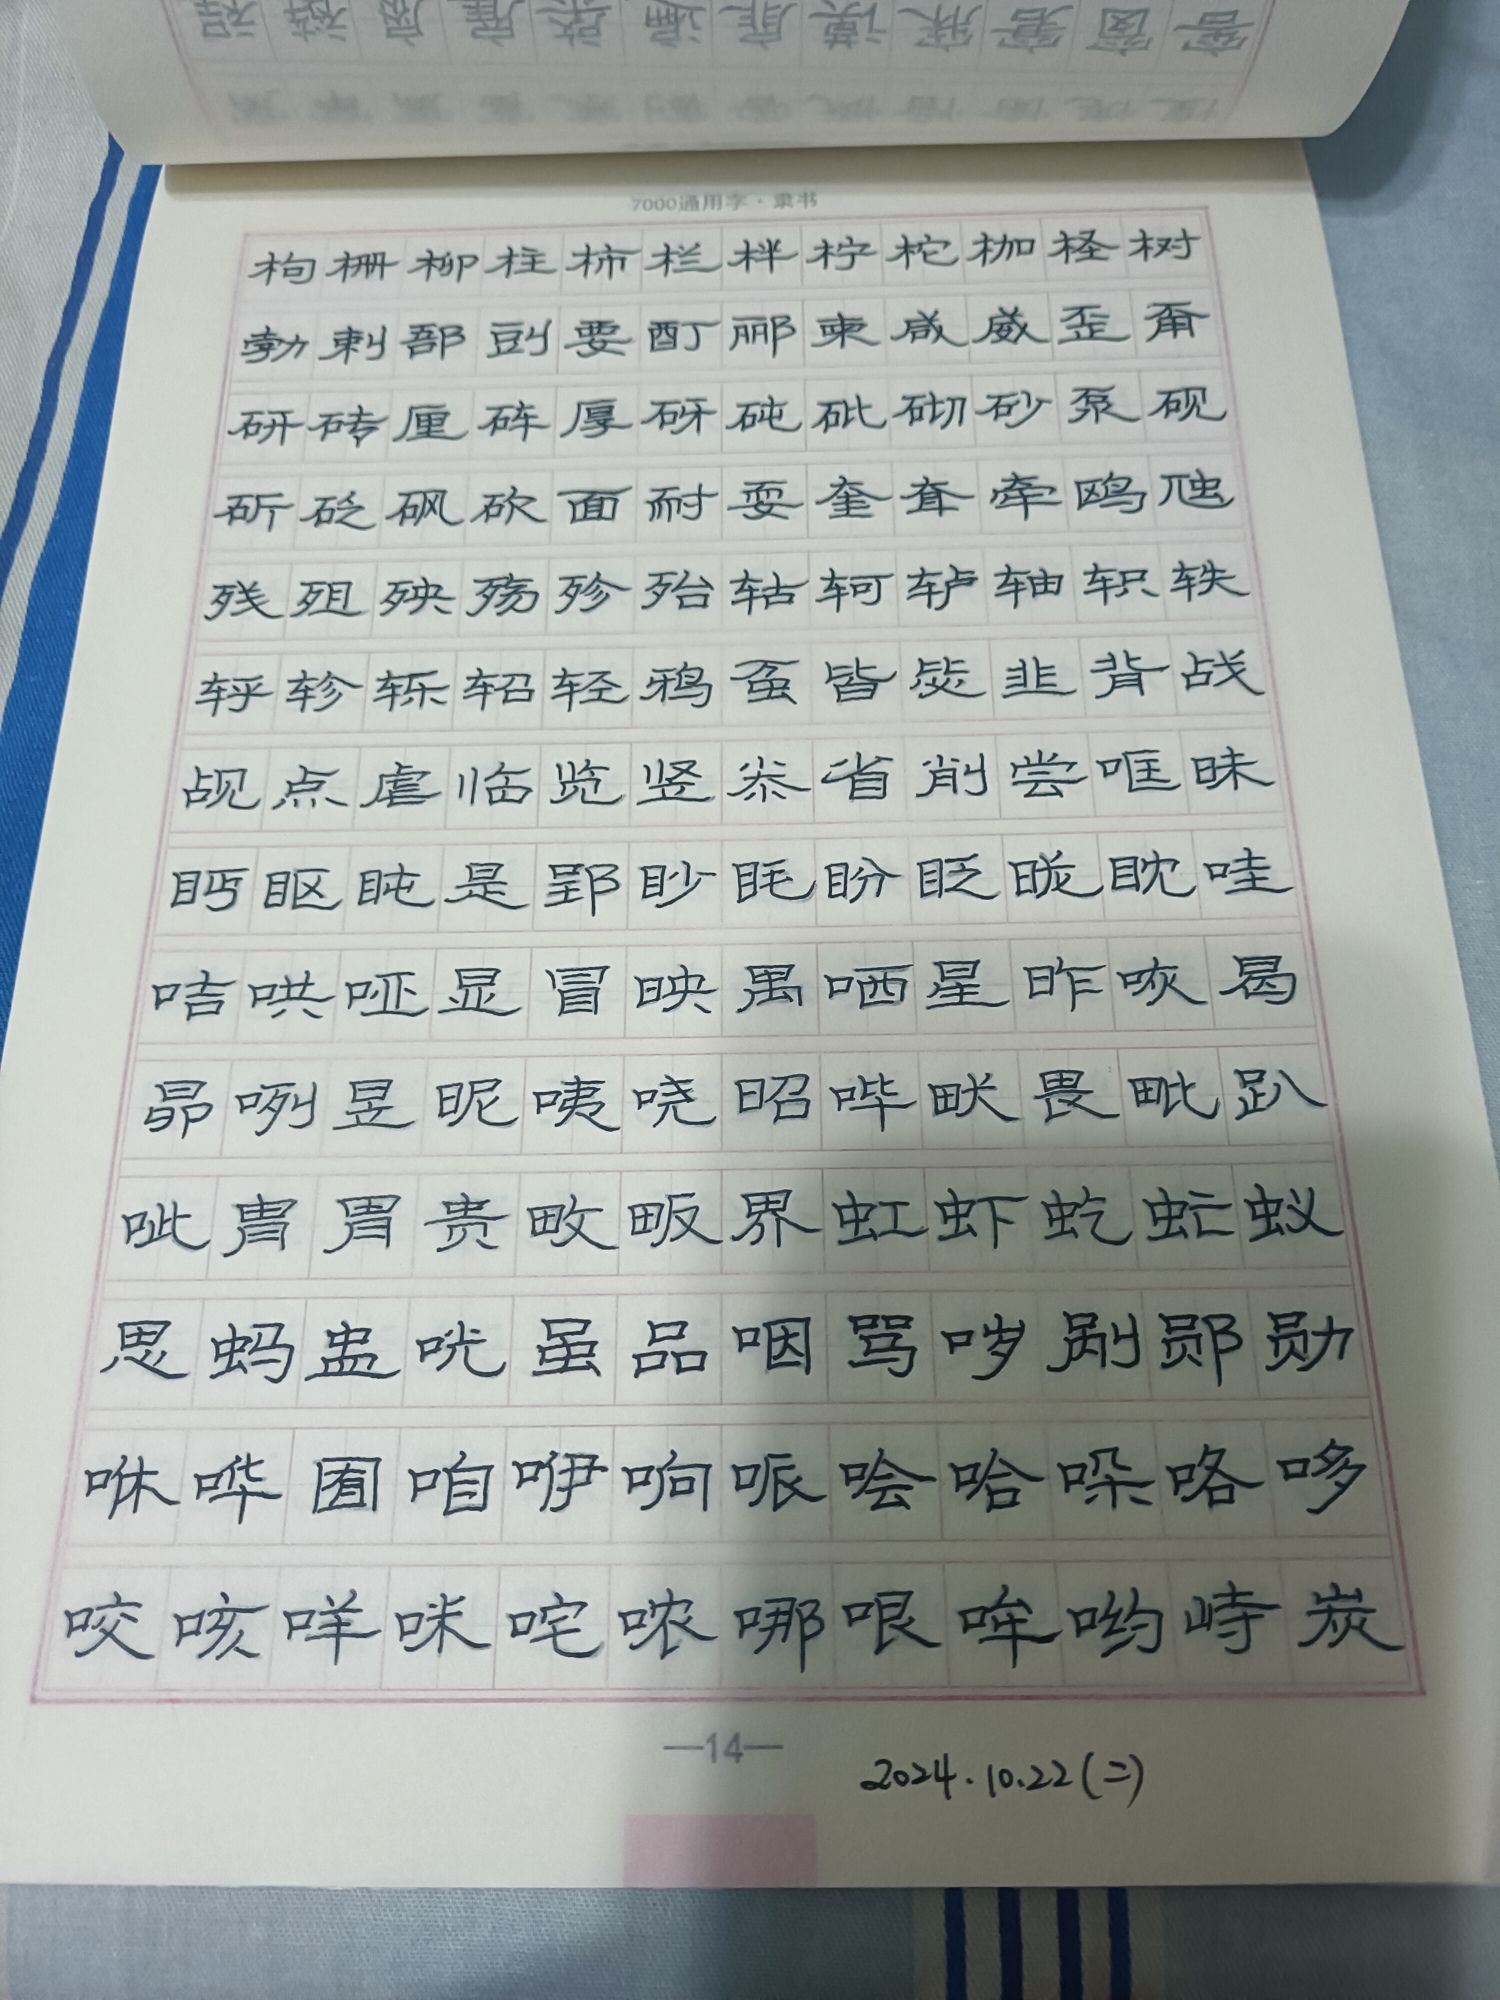 7000通用字·隶书
枸栅柳柱柿栏柈柠柁枷柽树
勃剌郚剅要酊郦柬咸威歪甭
研砖厘砗厚砑砘砒砌砂泵砚
斫砭砜砍面耐耍奎耷牵鸥虺
残殂殃殇殄殆轱轲轳轴轵轶
轷轸轹轺轻鸦虿皆毖韭背战
觇点虐临览竖尜省削尝哐昧
眄眍盹是郢眇眊盼眨昽眈哇
咭哄哑显冒映禺哂星昨咴曷
昴咧昱昵咦哓昭哔畎畏毗趴
呲胄胃贵畋畈界虹虾虼虻蚁
思蚂盅咣虽品咽骂哕剐郧勋
咻哗囿咱咿响哌哙哈哚咯哆
咬咳咩咪咤哝哪哏哞哟峙炭
—14—
2024.10.22(二)